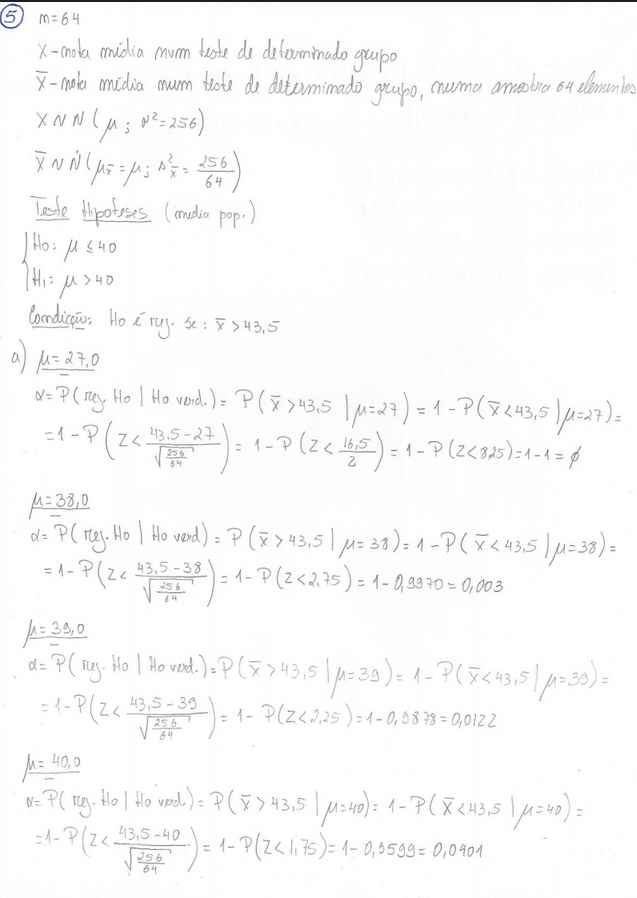 5 n=64
X - nota média num teste de determinado grupo
X̄ - nota média num teste de determinado grupo, numa amostra 64 elementos
X ~ N(μ; σ²=256)
X̄ ~ Ṅ(μx̄=μ; s²x̄ = 256/64)
Teste Hipoteses (media pop.)
{H0: μ ≤ 40
H1: μ > 40
Condição: H0 é rej. se: x̄ > 43,5
a) μ=27,0
α = P(rej. H0 | H0 verd.) = P(x̄ > 43,5 | μ=27) = 1 - P(x̄ < 43,5 | μ=27) =
= 1 - P(Z < (43,5-27)/√(256/64)) = 1 - P(Z < 16,5/2) = 1 - P(Z < 8,25) = 1-1 = ∅
μ=38,0
α = P(rej. H0 | H0 verd) = P(x̄ > 43,5 | μ=38) = 1 - P(x̄ < 43,5 | μ=38) =
= 1 - P(Z < (43,5-38)/√(256/64)) = 1 - P(Z < 2,75) = 1 - 0,9970 = 0,003
μ=39,0
α = P(rej. H0 | H0 verd.) = P(x̄ > 43,5 | μ=39) = 1 - P(x̄ < 43,5 | μ=39) =
= 1 - P(Z < (43,5-39)/√(256/64)) = 1 - P(Z < 2,25) = 1 - 0,9878 = 0,0122
μ=40,0
α = P(rej. H0 | H0 verd.) = P(x̄ > 43,5 | μ=40) = 1 - P(x̄ < 43,5 | μ=40) =
= 1 - P(Z < (43,5-40)/√(256/64)) = 1 - P(Z < 1,75) = 1 - 0,9599 = 0,0401